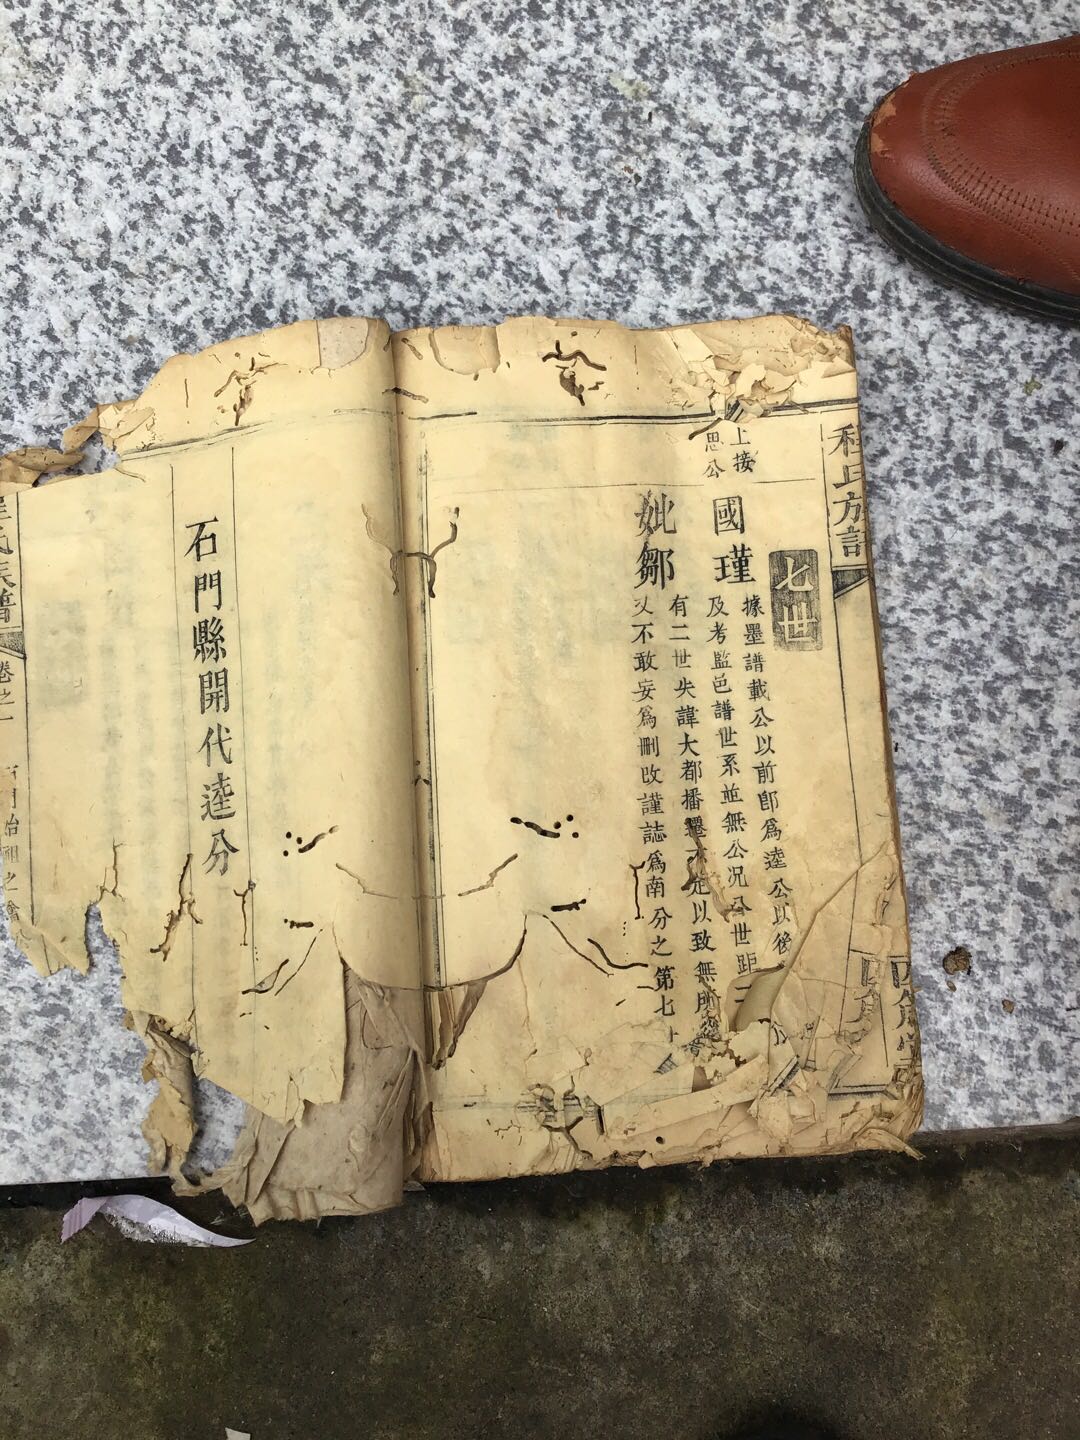 程氏族譜
四箴堂
七世
上接
思公
國瑾
據墨譜載公以前卽爲逵公以後
及考監邑譜世系並無公况公世距二
妣鄒
有二世失諱大都播遷不定以致無所
不敢妄爲刪改謹誌爲南分之第七
石門縣開代逵分
氏族譜
卷之一
石門始祖之